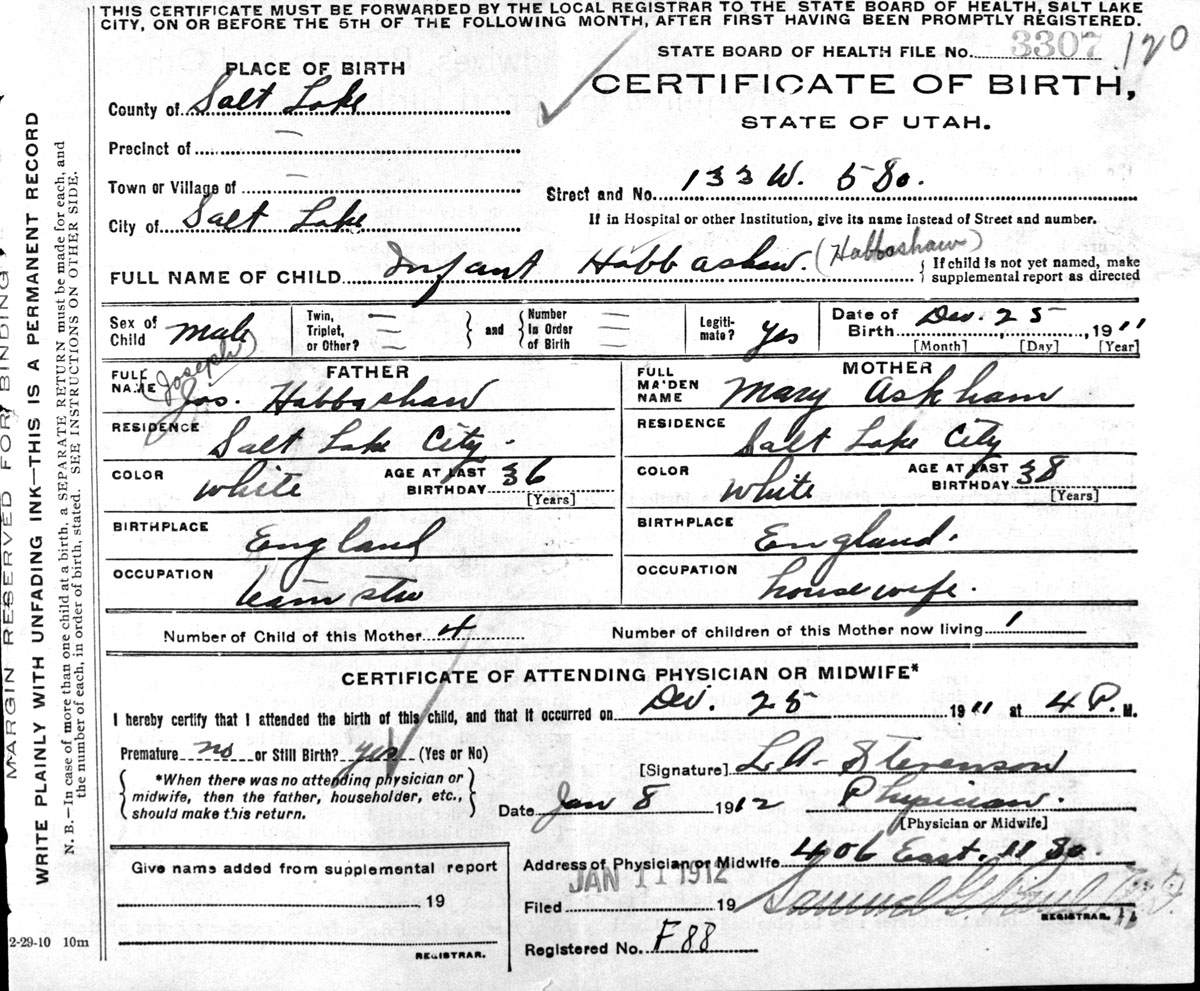 THIS CERTIFICATE MUST BE FORWARDED BY THE LOCAL REGISTRAR TO THE STATE BOARD OF HEALTH, SALT LAKE
CITY, ON OR BEFORE THE 5TH OF THE FOLLOWING MONTH, AFTER FIRST HAVING BEEN PROMPTLY REGISTERED.
STATE BOARD OF HEALTH FILE No. 3307 120
PLACE OF BIRTH
CERTIFICATE OF BIRTH,
STATE OF UTAH.
County of Salt Lake
Precinct of —
Town or Village of —
Street and No. 133 W. 5 So.
City of Salt Lake
If in Hospital or other Institution, give its name instead of Street and number.
FULL NAME OF CHILD Infant Habbashaw. (Habbashaw) { If child is not yet named, make
supplemental report as directed
Sex of Child male
Twin, Triplet, or Other? — } and { Number in Order of Birth —
Legiti-mate? yes
Date of Birth Dec. 25, 1911
[Month] [Day] [Year]
FATHER
FULL NAME (Joseph) Jos. Habbashaw
RESIDENCE Salt Lake City.
COLOR white AGE AT LAST BIRTHDAY 36 [Years]
BIRTHPLACE England
OCCUPATION teamster
MOTHER
FULL MAIDEN NAME Mary Askham
RESIDENCE Salt Lake City
COLOR white AGE AT LAST BIRTHDAY 38 [Years]
BIRTHPLACE England.
OCCUPATION housewife.
Number of Child of this Mother 4 Number of children of this Mother now living 1
CERTIFICATE OF ATTENDING PHYSICIAN OR MIDWIFE*
I hereby certify that I attended the birth of this child, and that it occurred on Dec. 25 1911 at 4 P. M.
Premature no or Still Birth? yes (Yes or No)
*When there was no attending physician or
midwife, then the father, householder, etc.,
should make this return.
[Signature] L.A. Stevenson
Date Jan 8 1912 Physician.
[Physician or Midwife]
Give name added from supplemental report
19
REGISTRAR.
Address of Physician or Midwife 406 East. 11 So.
JAN 11 1912
Filed 19 Samuel G. Paul
REGISTRAR.
Registered No. F 88
MARGIN RESERVED FOR BINDING
WRITE PLAINLY WITH UNFADING INK—THIS IS A PERMANENT RECORD
N. B.—In case of more than one child at a birth, a SEPARATE RETURN must be made for each, and
the number of each, in order of birth, stated. SEE INSTRUCTIONS ON OTHER SIDE.
2-29-10 10m